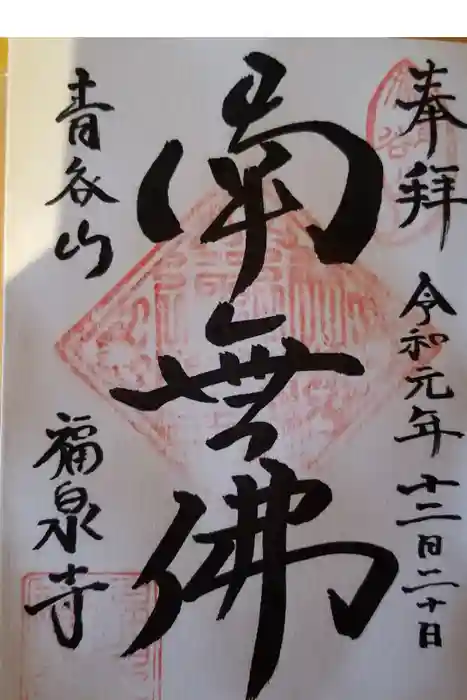 奉拝 令和元年十二日二十日
南無佛
青谷山 福泉寺